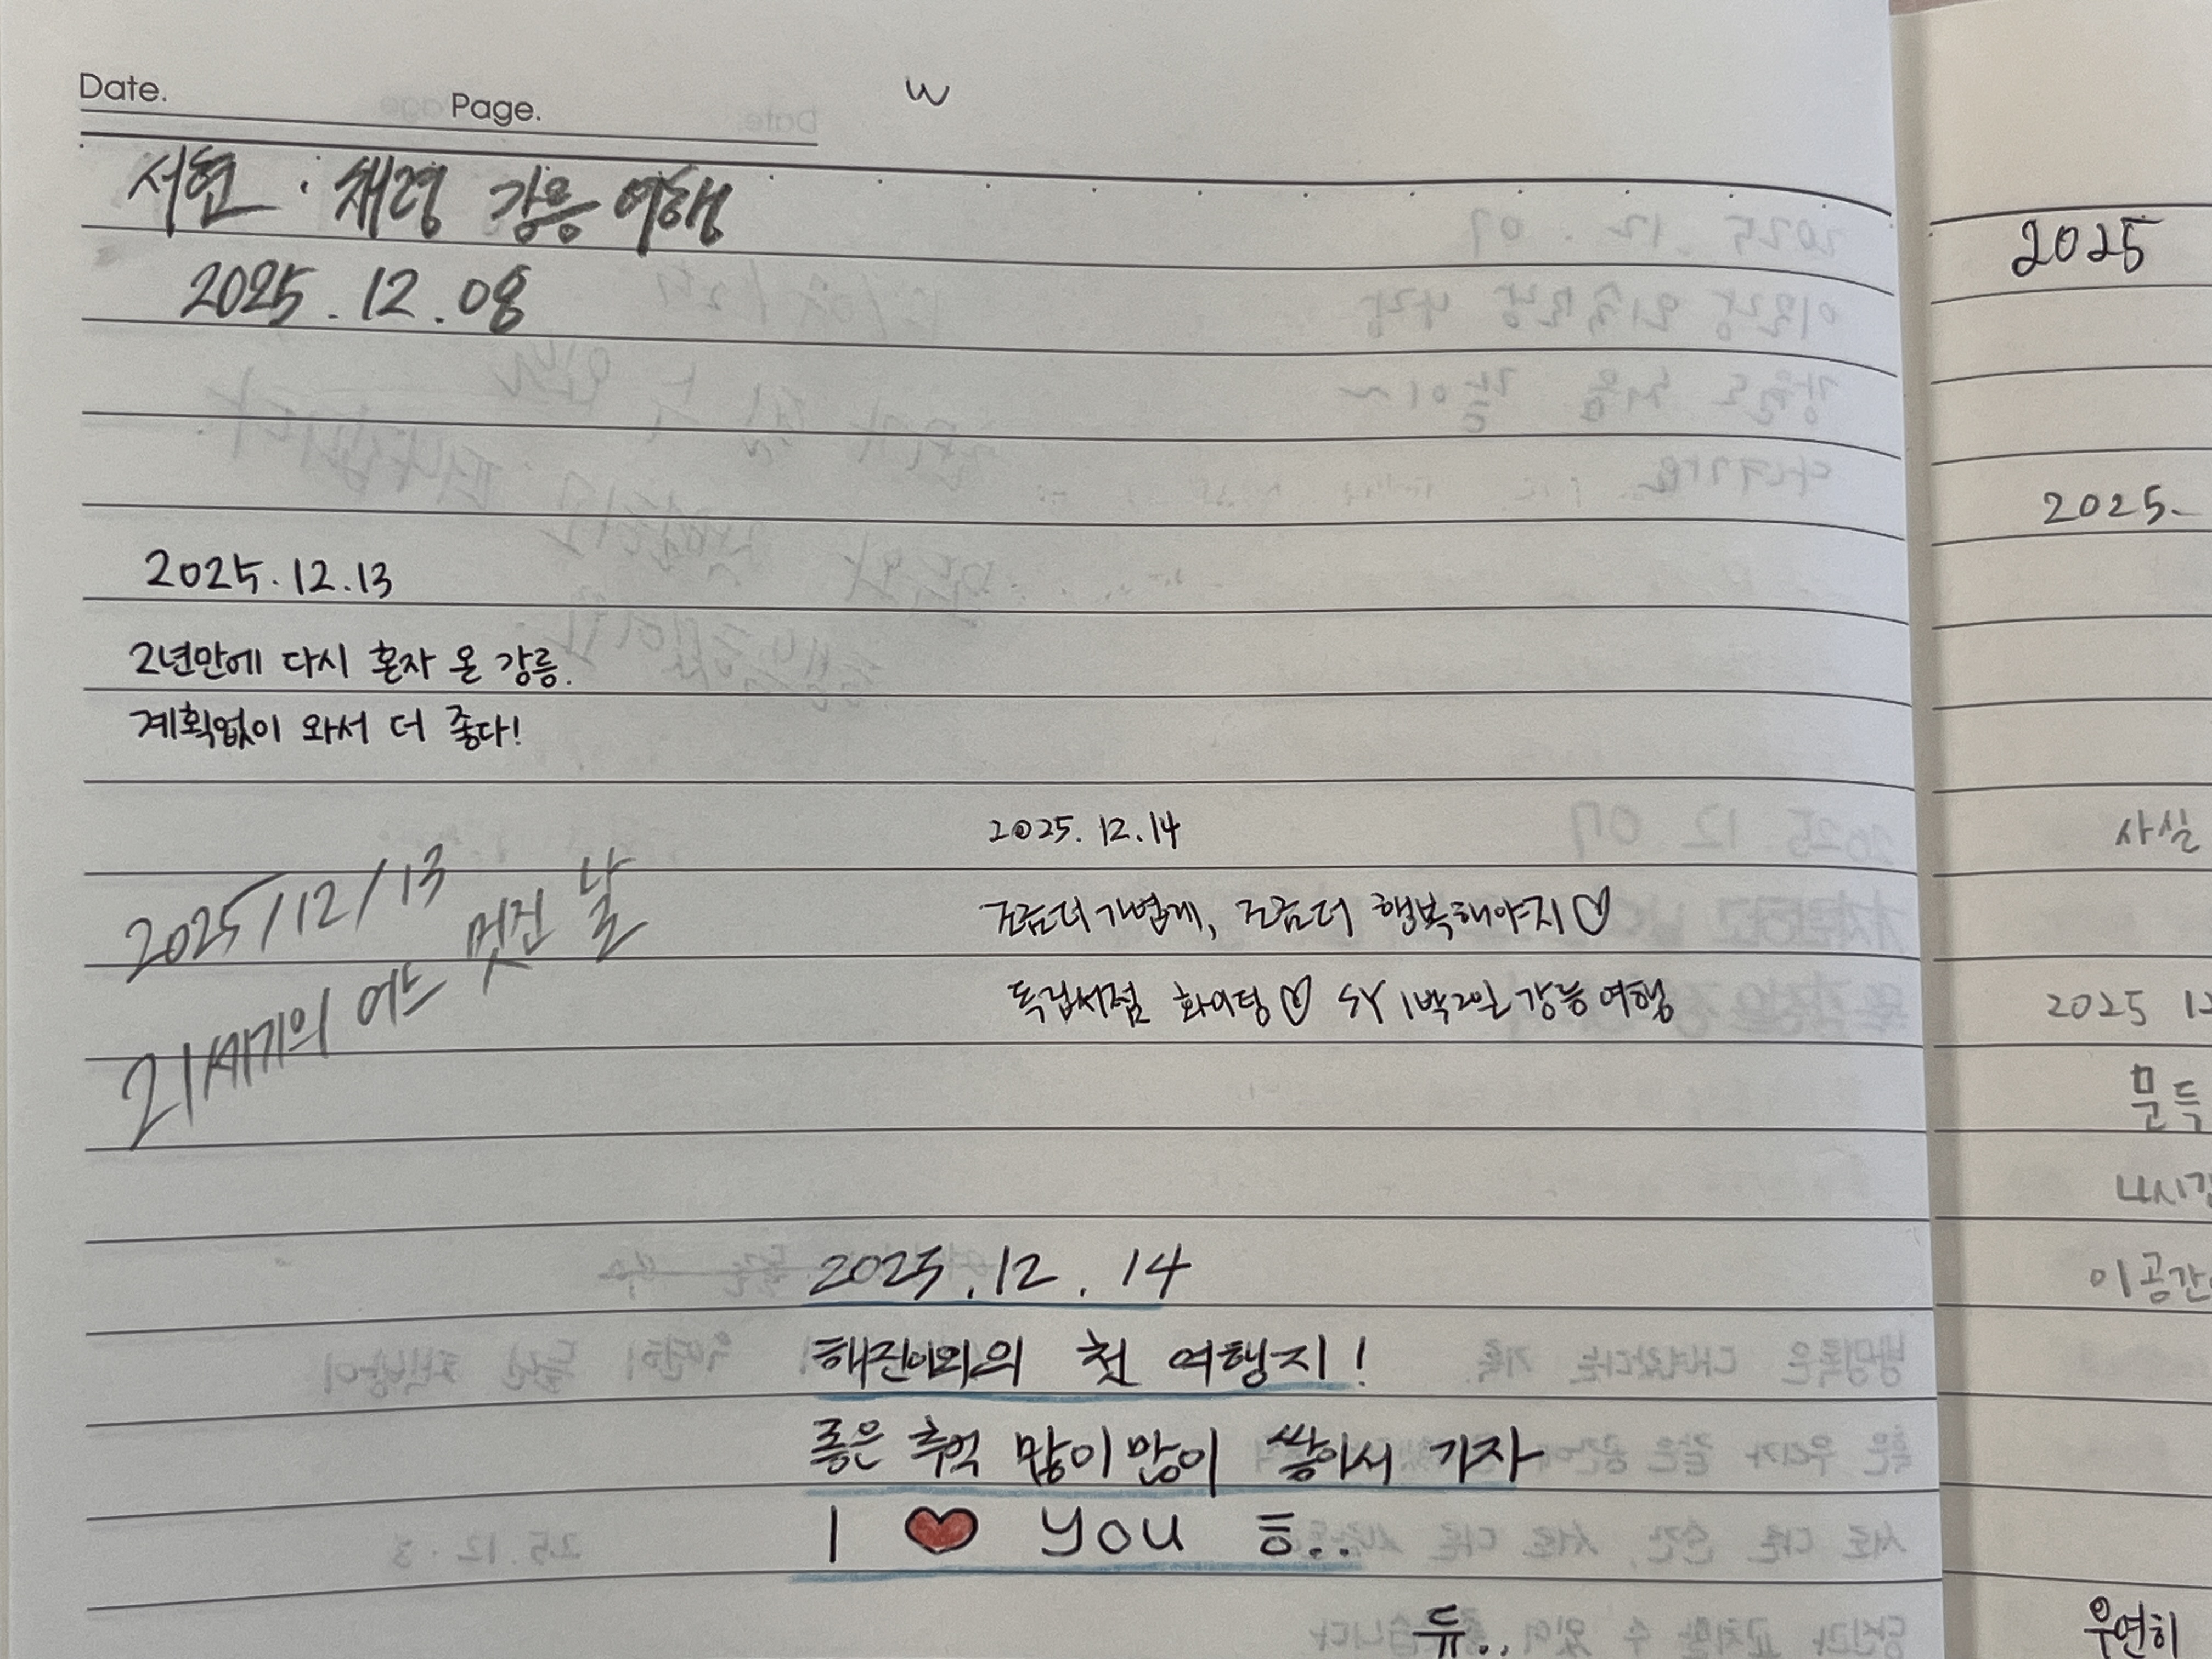 Date.
Page.
w
서현 · 채령 강릉 여행
2025.12.08
2025.12.13
2년만에 다시 혼자 온 강릉.
계획없이 와서 더 좋다!
2025/12/13
21세기의 어느 멋진 날
2025.12.14
조금더 가볍게, 조금더 행복해야지♡
독립서점 화이팅♡ SY 1박2일 강릉여행
2025.12.14
해진이와의 첫 여행지!
좋은 추억 많이많이 쌓아서 가자
I ♥ you ㅎ..
듀..
2025
2025.
사실
2025 12
문득
4시간
이공간
우연히